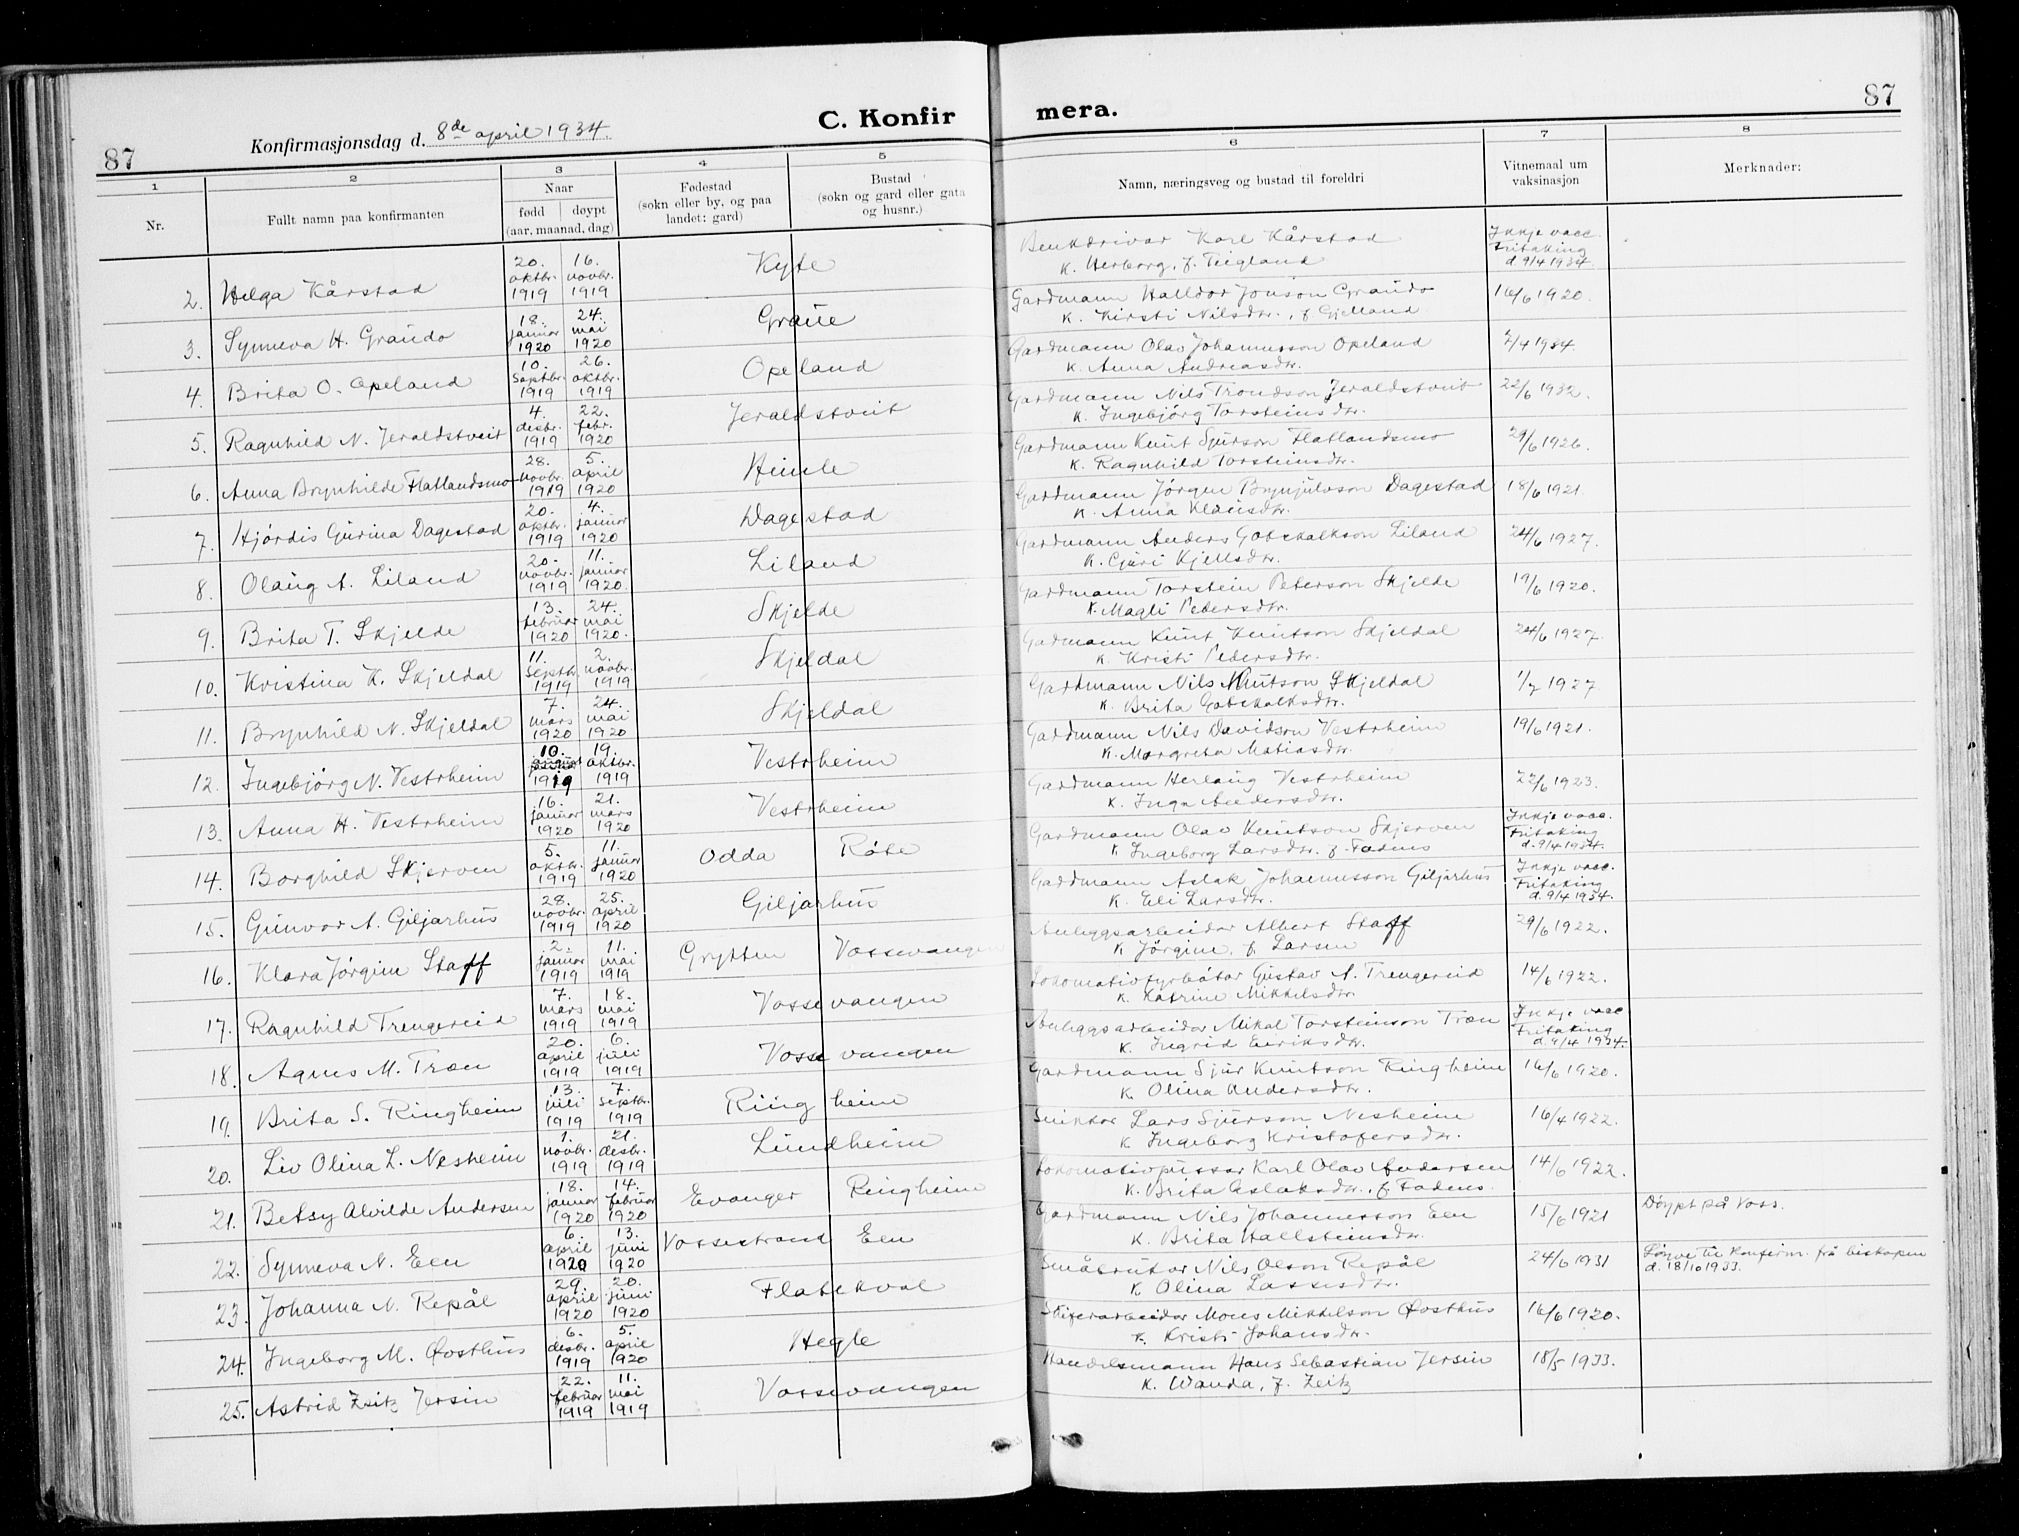 87
Konfirmasjonsdag d. 8de april 1934
C. Konfir mera.
87
1 2 3 4 5 6 7 8
Nr.
Fullt namn paa konfirmanten
Naar
fødd døypt
(aar, maanad, dag)
Fødestad
(sokn eller by, og paa
landet: gard)
Bustad
(sokn og gard eller gata
og husnr.)
Namn, næringsveg og bustad til foreldri
Vitnemaal um
vaksinasjon
Merknader:
2. Helga Kårstad 20. oktbr. 1919 16. novbr. 1919 Kyte Karl Kårstad
K. Herborg, f. Teigland Ikkje vacc. Fritaking d. 9/4 1934.
3. Synneva H. Graudo 18. januar 1920 24. mai 1920 Graue Gardmann Halldor Jonson Graudo
K. Kirsti Nilsdtr., f. Gjelland 16/6 1920.
4. Brita O. Opeland 10. septbr. 1919 26. oktbr. 1919 Opeland Gardmann Olav Johannesson Opeland
K. Anna Andreasdtr. 7/4 1934.
5. Ragnhild N. Jeraldstveit 4. desbr. 1919 22. febr. 1920 Jeraldstveit Gardmann Nils Trondson Jeraldstveit
K. Ingebjörg Torsteinsdtr. 22/6 1932.
6. Anna Brynhilde Flatlandsmo 28. novbr. 1919 5. april 1920 Heimle Gardmann Knut Sjurson Flatlandsmo
K. Ragnhild Torsteinsdtr. 29/6 1926.
7. Hjördis Gurina Dagestad 20. oktbr. 1919 4. januar 1920 Dagestad Gardmann Jörgen Brynjulvson Dagestad
K. Anna Klausdtr. 18/6 1921.
8. Olaug A. Liland 20. novbr. 1919 11. januar 1920. Liland Gardmann Anders Gotskalkson Liland
K. Guri Kjellsdtr. 24/6 1927.
9. Brita T. Skjelde 13. februar 1920 24. mai 1920. Skjelde Gardmann Torstein Peterson Skjelde
K. Magli Pedersdtr. 19/6 1920.
10. Kristina K. Skjeldal 11. septbr. 1919 2. novbr. 1919 Skjeldal Gardmann Knut Knutson Skjeldal
K. Kristi Pedersdtr. 24/6 1927.
11. Brynhild N. Skjeldal 7. mars 1920 24. mai 1920 Skjeldal Gardmann Nils Knutson Skjeldal
K. Brita Gotskalksdtr. 1/7 1927
12. Ingebjörg N. Vestrheim 10. august 1919 19. oktbr. 1919 Vestrheim Gardmann Nils Davidson Vestrheim
K. Margreta Matiasdtr. 19/6 1921.
13. Anna H. Vestrheim 16. januar 1920 21. mars 1920 Vestrheim Gardmann Herlaug Vestrheim
K. Inga Andersdtr. 22/6 1923.
14. Borghild Skjerven 5. oktbr. 1919 11. januar 1920 Odda Röte Gardmann Olav Knutson Skjerven
K. Ingeborg Larsdtr. f. Fadnes Ikkje vacc. Fritaking d. 9/4 1934.
15. Gunvor A. Giljarhus 28. novbr. 1919 25. april 1920 Giljarhus Gardmann Aslak Johannesson Giljarhus
K. Eli Larsdtr. Ikkje vacc. Fritaking d. 9/4 1934.
16. Klara Jörgine Staff 2. januar 1919 11. mai 1919 Grytten Vossevangen Anleggsarbeidar Albert Staff
K. Jörgine, f. Larsen 29/6 1922.
17. Ragnhild Trengereid 7. mars 1919 18. mai 1919 Vossevangen Lokomotivfyrbötar Gustav A. Trengereid
K. Katrine Mikkelsdtr. 14/6 1922.
18. Agnes M. Træn 20. april 1919 6. juli 1919 Vossevangen Anleggsarbeidar Mikal Torsteinson Træn
K. Ingrid Eiriksdtr. Ikkje vacc Fritaking d. 9/4 1934.
19. Brita S. Ringheim 13. juli 1919 7. septbr. 1919 Ringheim Gardmann Sjur Knutson Ringheim
K. Olina Andersdtr. 16/6 1920.
20. Liv Olina L. Nesheim 1. novbr. 1919 21. desbr. 1919 Lundheim Snikkar Lars Sjurson Nesheim
K. Ingeborg Kristofersdtr. 16/4 1922.
21. Betsy Alvilde Andersen 18. januar 1920 14. februar 1920 Evanger Ringheim Lokomotivpussar Karl Olav Andersen
K. Brita Aslaksdtr., f. Fadnes. 14/6 1922.
22. Synneva N. Een 6. april 1920 13. juni 1920 Vossestrand Een Gardmann Nils Johannesson Een
K. Brita Hallsteinsdtr. 15/6 1921 Döypt på Voss.
23. Johanna N. Repål 29. april 1920 20. juni 1920 Flatekval Småbrukar Nils Olson Repål
K. Olina Lassesdtr. 24/6 1931 Löyve til konfirm. frå biskopen d. 18/10 1933.
24. Ingeborg M. Øosthus 6. desbr. 1919 5. april 1920 Hegle Skiferarbeidar Mons Mikkelson Øosthus
K. Kristi Johansdtr. 16/6 1920.
25. Astrid Zeitz Jersin 22. februar 1919 11. mai 1919 Vossevangen Handelsmann Hans Sebastian Jersin
K. Wanda, f. Zeitz 18/5 1933.